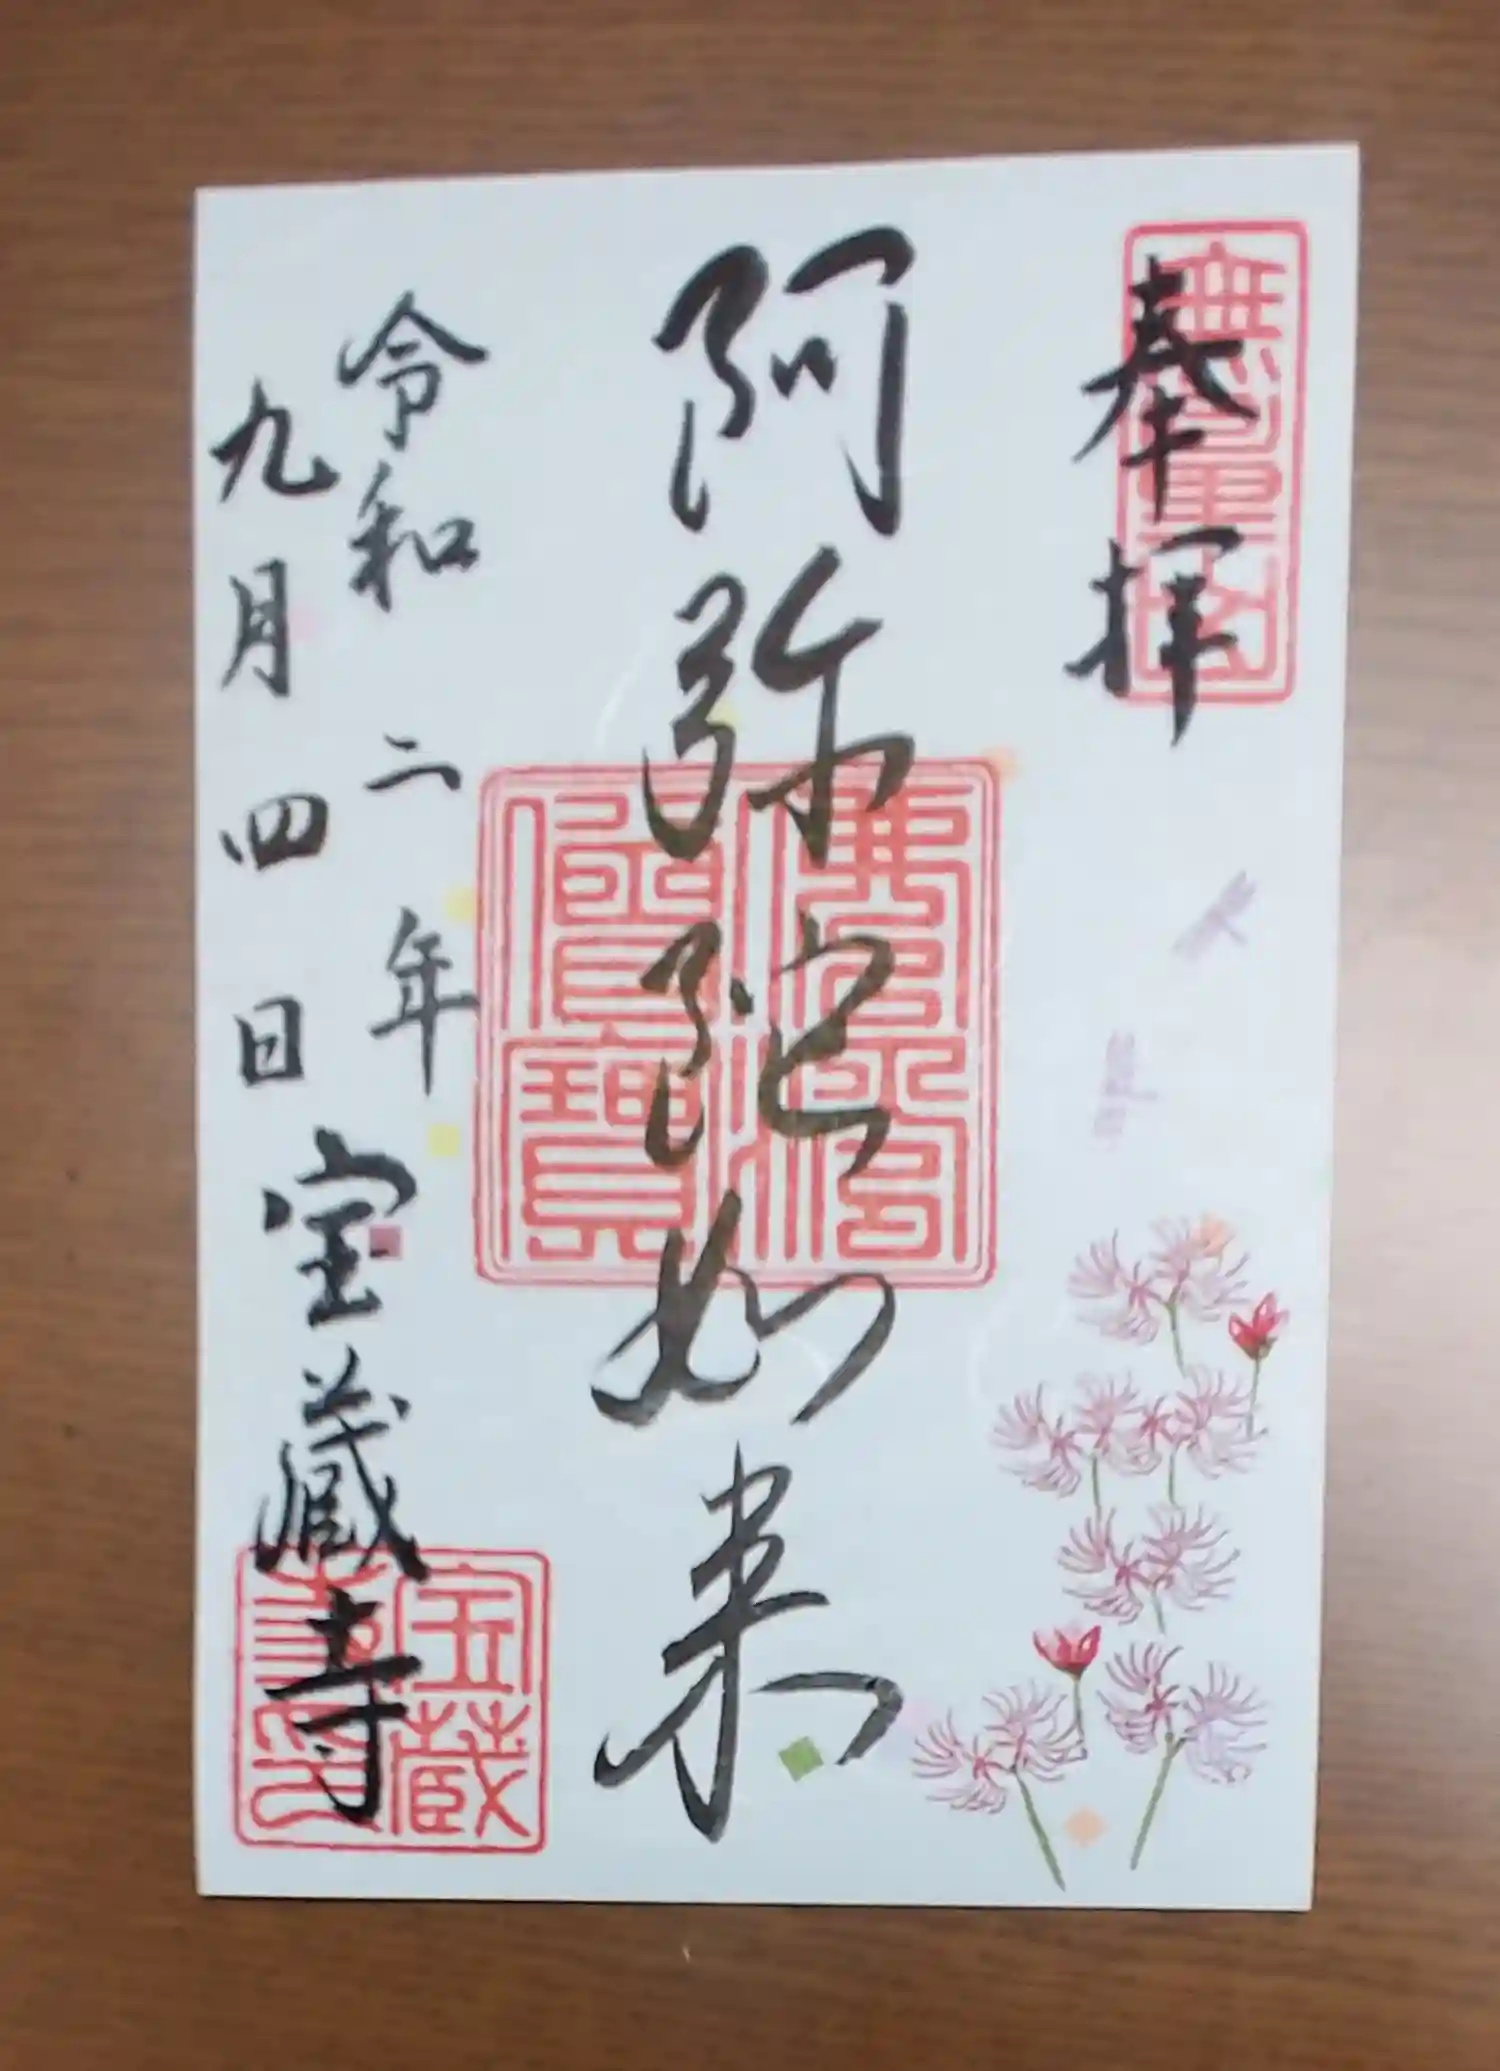 奉拝
阿弥陀如来
令和二年
九月四日
宝蔵寺
佛法僧寶
宝蔵寺印